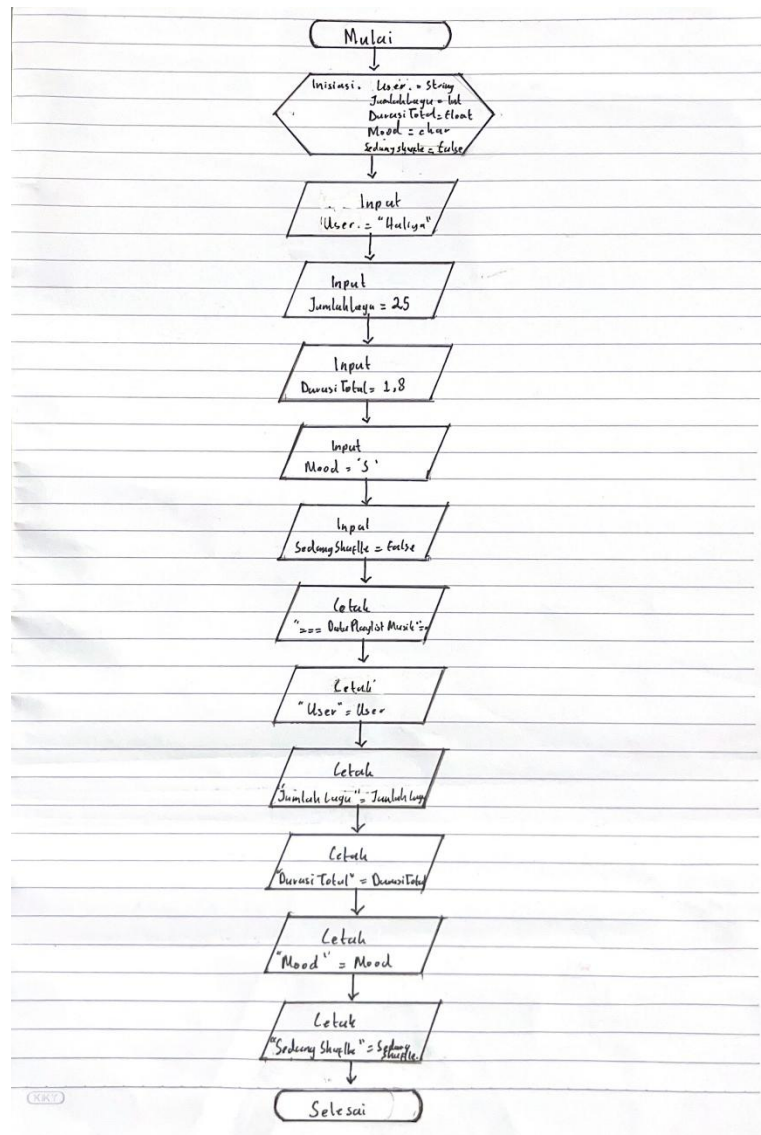 Mulai
Inisiasi. User. = String
JumlahLagu = Int
DurasiTotal = float
Mood = char
SedangShuffle = false
Input
User. = "Haliya"
Input
JumlahLagu = 25
Input
DurasiTotal = 1,8
Input
Mood = 'S'
Input
SedangShuffle = false
Cetak
"=== Playlist Musik"==
Cetak
"User" = User
Cetak
"Jumlah Lagu" = Jumlah Lagu
Cetak
"Durasi Total" = DurasiTotal
Cetak
"Mood" = Mood
Cetak
"Sedang Shuffle" = Sedang
Shuffle.
Selesai
KKY